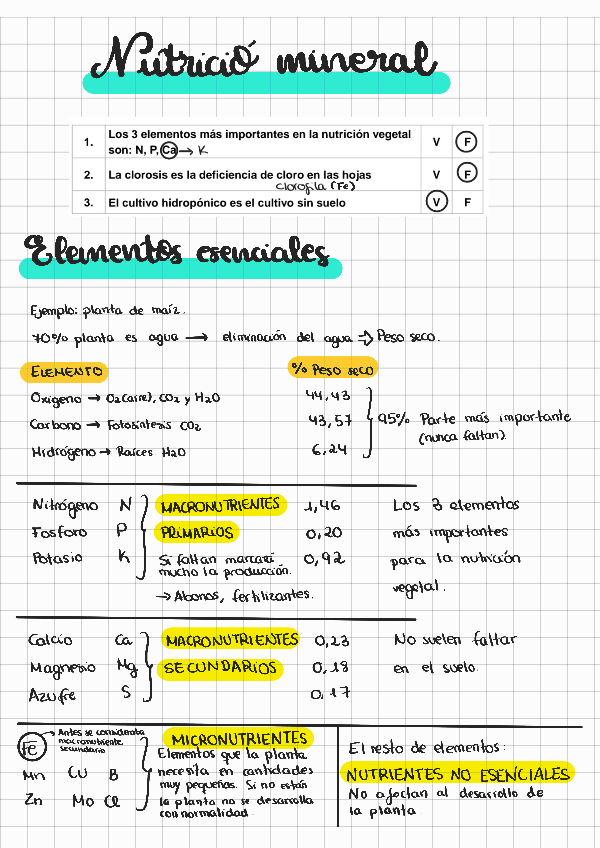 Nutrició mineral
1. Los 3 elementos más importantes en la nutrición vegetal son: N, P, Ca → K V F
2. La clorosis es la deficiencia de cloro en las hojas V F
clorofila (Fe)
3. El cultivo hidropónico es el cultivo sin suelo V F
Elementos esenciales
Ejemplo: planta de maíz.
70% planta es agua → eliminación del agua ⇒ Peso seco.
ELEMENTO % Peso seco
Oxígeno → O2(aire), CO2 y H2O 44,43
Carbono → Fotosíntesis CO2 43,57 95% Parte más importante
(nunca faltan).
Hidrógeno → Raíces H2O 6,24
Nitrógeno N MACRONUTRIENTES 1,46 Los 3 elementos
Fosforo P PRIMARIOS 0,20 más importantes
Potasio K Si faltan marcará 0,92 para la nutrición
mucho la producción.
→ Abonos, fertilizantes. vegetal.
Calcio Ca MACRONUTRIENTES 0,23 No suelen faltar
Magnesio Mg SECUNDARIOS 0,18 en el suelo.
Azufre S 0,17
Fe → Antes se consideraba
macronutriente
secundario
Mn Cu B
Zn Mo Cl
MICRONUTRIENTES
Elementos que la planta
necesita en cantidades
muy pequeñas. Si no están
la planta no se desarrolla
con normalidad.
El resto de elementos:
NUTRIENTES NO ESENCIALES
No afectan al desarrollo de
la planta